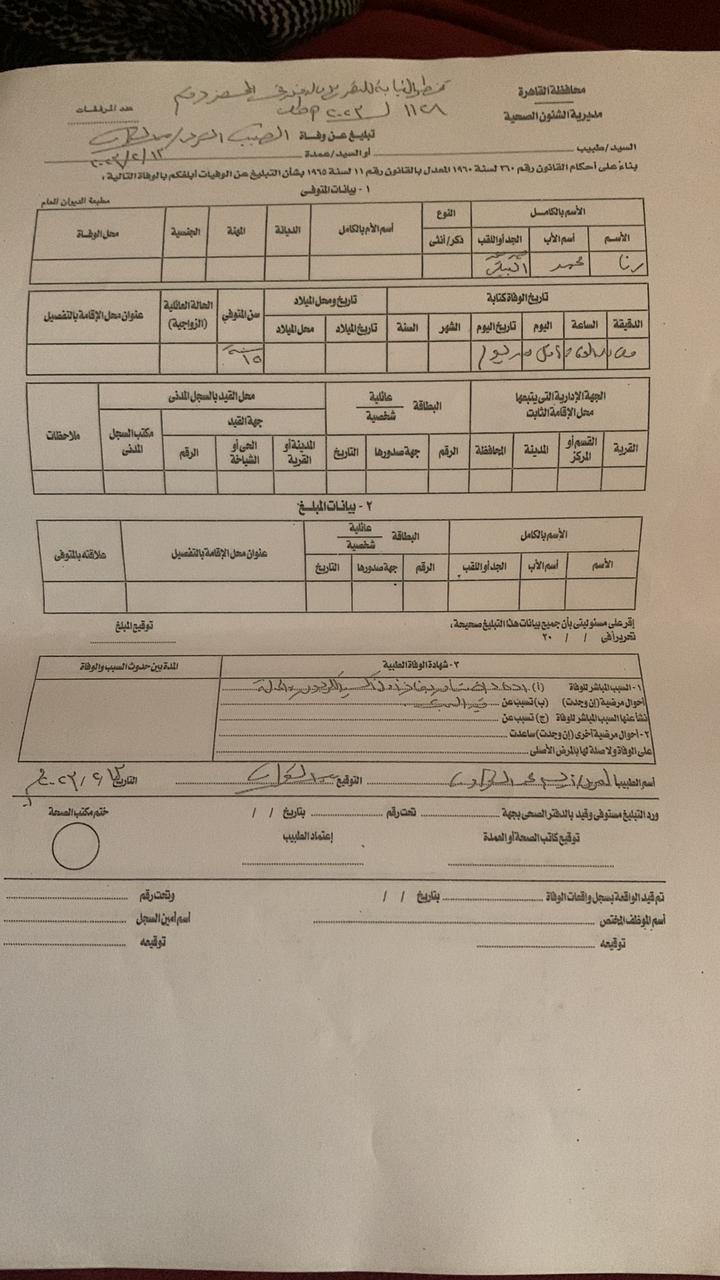 محافظة القاهرة
مديرية الشئون الصحية
عدد المرفقات
١١٢٨ لـ ٢٠٢٣
تبليغ عن وفاة
السيد/طبيب أو السيد/عمدة
بناءً على أحكام القانون رقم ٢٦٠ لسنة ١٩٦٠ المعدل بالقانون رقم ١١ لسنة ١٩٦٥ بشأن التبليغ عن الوفيات أبلغكم بالوفاة التالية:
مطبعة الديوان العام
١- بيانات المتوفى
الأسم بالكامل النوع أسم الأم بالكامل الديانة المهنة الجنسية محل الوفاة
الأسم أسم الأب الجد أو اللقب ذكر/أنثى
رنا محمد
تاريخ الوفاة كتابة تاريخ ومحل الميلاد سن المتوفى الحالة العائلية (الزواجية) عنوان محل الإقامة بالتفصيل
الدقيقة الساعة اليوم تاريخ اليوم الشهر السنة تاريخ الميلاد محل الميلاد
١٥ سنة
الجهة الإدارية التى يتبعها محل الإقامة الثابت البطاقة عائلية شخصية محل القيد بالسجل المدنى ملاحظات
جهة القيد مكتب السجل المدنى
القرية القسم أو المركز المدينة المحافظة الرقم جهة صدورها التاريخ المدينة أو القرية الحى أو الشياخة الرقم
٢- بيانات المبلغ
الأسم بالكامل البطاقة عائلية شخصية عنوان محل الإقامة بالتفصيل علاقته بالمتوفى
الأسم أسم الأب الجد أو اللقب الرقم جهة صدورها التاريخ
إقر على مسئوليتى بأن جميع بيانات هذا التبليغ صحيحة، توقيع المبلغ
تحريراً فى / / ٢٠
٣- شهادة الوفاة الطبية المدة بين حدوث السبب والوفاة
١- السبب المباشر للوفاة (أ)
أحوال مرضية (إن وجدت) (ب) تسبب عن
نشأ عنها السبب المباشر للوفاة (ج) تسبب عن
٢- أحوال مرضية أخرى (إن وجدت) ساعدت
على الوفاة ولا صلة لها بالمرض الأصلى
أسم الطبيب التوقيع التاريخ
ورد التبليغ مستوفى وقيد بالدفتر الصحى بجهة تحت رقم بتاريخ / / ختم مكتب الصحة
توقيع كاتب الصحة أو العمدة إعتماد الطبيب
تم قيد الواقعة بسجل واقعات الوفاة بتاريخ / / وتحت رقم
أسم الموظف المختص أسم أمين السجل
توقيعه توقيعه